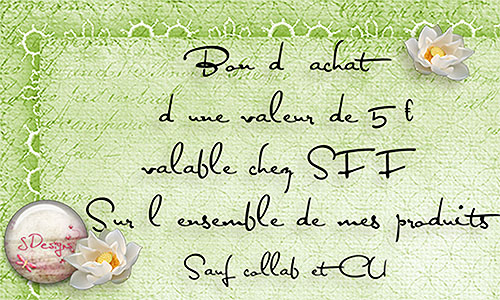 Bon d achat
d une valeur de 5 €
valable chez SFF
Sur l ensemble de mes produits
Sauf collab et CU
SDesign